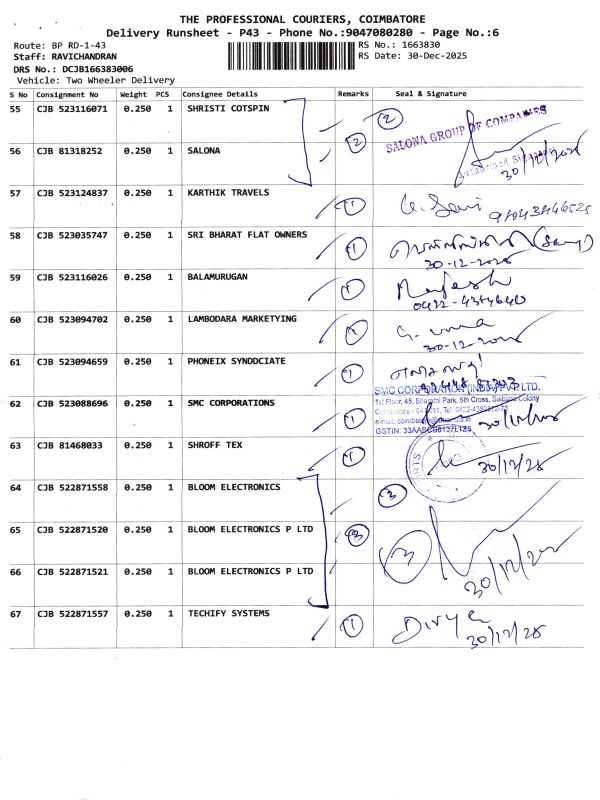 THE PROFESSIONAL COURIERS, COIMBATORE
Delivery Runsheet - P43 - Phone No.:9047080280 - Page No.:6
Route: BP RD-1-43
RS No.: 1663830
Staff: RAVICHANDRAN
RS Date: 30-Dec-2025
DRS No.: DCJB166383006
Vehicle: Two Wheeler Delivery
S No Consignment No Weight PCS Consignee Details Remarks Seal & Signature
55 CJB 523116071 0.250 1 SHRISTI COTSPIN 2
SALONA GROUP OF COMPANIES
56 CJB 81318252 0.250 1 SALONA 2
Authorised Signatory
30/12/2025
57 CJB 523124837 0.250 1 KARTHIK TRAVELS 1
58 CJB 523035747 0.250 1 SRI BHARAT FLAT OWNERS 1
30-12-2025
59 CJB 523116026 0.250 1 BALAMURUGAN 1
0422-4364640
60 CJB 523094702 0.250 1 LAMBODARA MARKETYING 1
G. uma
30-12-2025
61 CJB 523094659 0.250 1 PHONEIX SYNDDCIATE 1
SMC CORPORATION (INDIA) PVT. LTD.
62 CJB 523088696 0.250 1 SMC CORPORATIONS 1
1st Floor, 45, Bharathi Park, 6th Cross, Saibaba Colony
30/12/25
63 CJB 81468033 0.250 1 SHROFF TEX 1
30/12/25
64 CJB 522871558 0.250 1 BLOOM ELECTRONICS 3
65 CJB 522871520 0.250 1 BLOOM ELECTRONICS P LTD 3
3
66 CJB 522871521 0.250 1 BLOOM ELECTRONICS P LTD
30/12/25
67 CJB 522871557 0.250 1 TECHIFY SYSTEMS 1 Divya
30/12/25